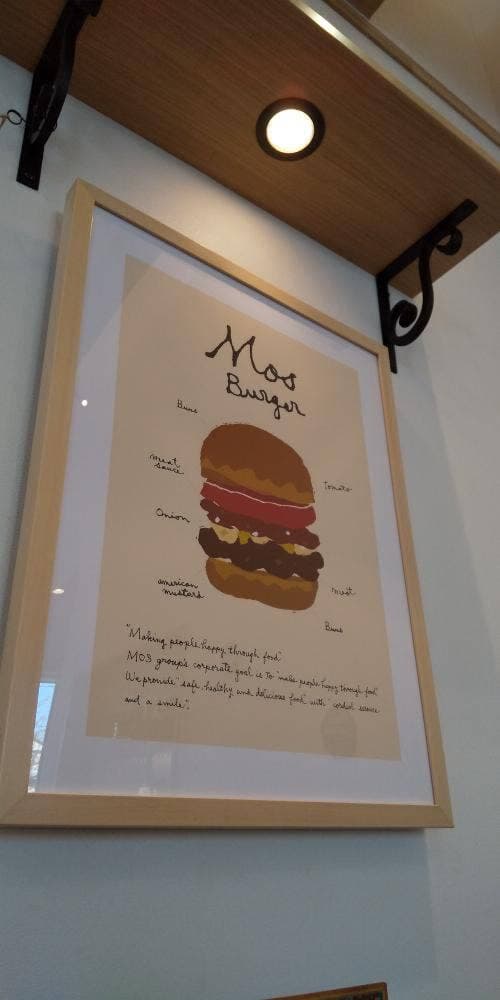 Mos
Burger
Buns
meat
sauce
tomato
Onion
american
mustard
meat
Buns
"Making people happy through food"
MOS group's corporate goal is to "make people happy through food"
We provide "safe, healthy and delicious food" with "cordial service
and a smile".